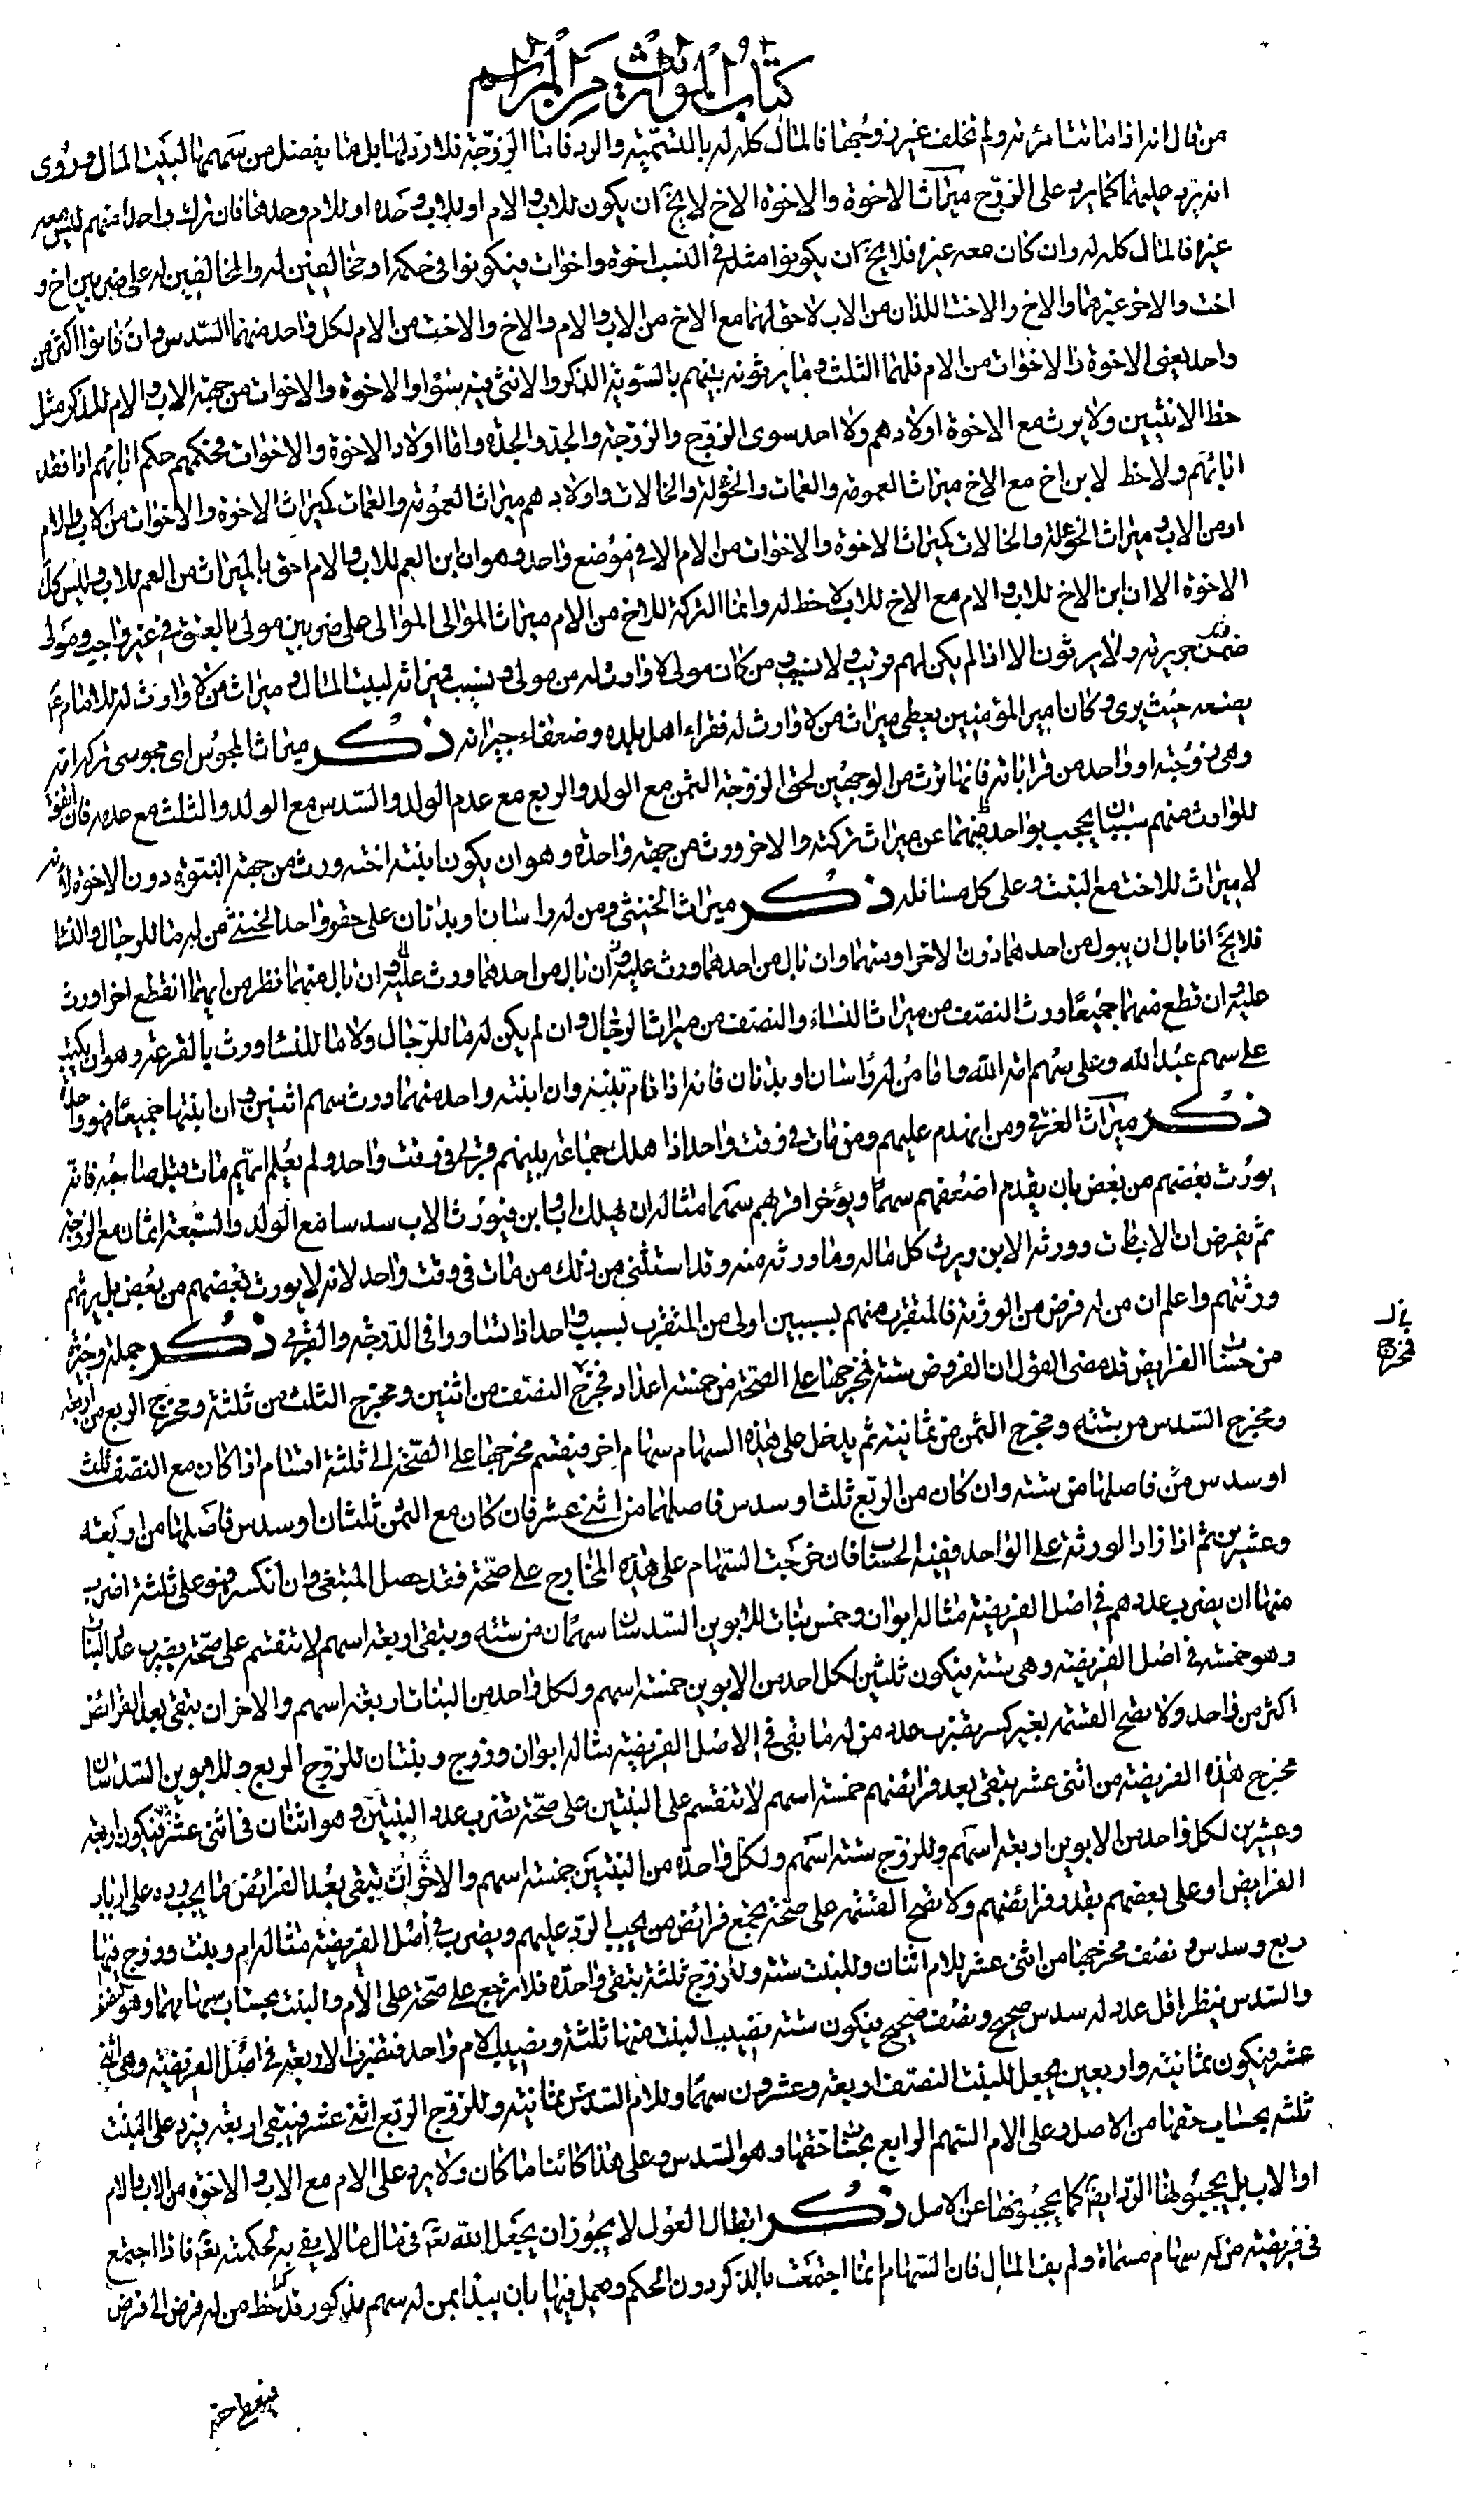 كتاب المواريث من المراسم
من قال انه اذا ماتت امرئته ولم تخلف غير زوجها فالمال كله له بالتسمية والرد فاما الزوجة فلا رد لها بل ما يفضل من سهمها لبيت المال وروى
انه يرد عليها كما يرد على الزوج ميراث الاخوة والاخوة الاخ لا يخ ان يكون للاب والام او للاب وحده او للام وحدها فان ترك واحدا منهم ليس معه
غيره فالمال كله له وان كان معه غيره فلا يخ ان يكونوا مثله في النسب اخوة واخوات فيكونوا في حكمه او مخالفين له والمخالفين له على ضربين اخ و
اخت والاخر غيرهما والاخ والاخت اللذان من الاب لا حق لهما مع الاخ من الاب والام والاخ والاخت من الام لكل واحد منهما السدس وان كانوا اكثر من
واحد يعنى الاخوة والاخوات من الام فلهما الثلث وما يرثونه بينهم بالسوية الذكر والانثى فيه سواء والاخوة والاخوات من جهة الاب والام للذكر مثل
حظ الانثيين ولا يرث مع الاخوة اولادهم ولا احد سوى الزوج والزوجة والجد والجدة واما اولاد الاخوة والاخوات فحكمهم حكم ابائهم اذا فقد
ابائهم ولا حظ لابن اخ مع الاخ ميراث العمومة والعمات والخؤلة والخالات واولادهم ميراث العمومة والعمات كميراث الاخوة والاخوات من الاب والام
او من الاب وميراث الخؤلة والخالات كميراث الاخوة والاخوات من الام الا في موضع واحد وهو ان ابن العم للاب والام احق بالميراث من العم للاب وليس كك
الاخوة الا ان ابن الاخ للاب والام مع الاخ للاب لا حظ له وانما التركة للاخ من الام ميراث الموالى الموالى على ضربين مولى بالعتق في غير واجب ومولى
ضمن جريرته ولا يرثون الا اذا لم يكن لهم قريب ولا نسيب ومن كان مولى لا وارث له من مولى ونسيب فميراثه لبيت المال وميراث من لا وارث له للامام ع
يضعه حيث يرى وكان امير المؤمنين يعطى ميراث من لا وارث له فقراء اهل بلده وضعفاء جيرانه ذكر ميراث المجوس اى مجوسى تركه امه
وهى زوجته او واحد من قراباته فانها ترث من الوجهين لحق الزوجة الثمن مع الولد والربع مع عدم الولد والسدس مع الولد والثلث مع عدمه فان اتفق
للوارث منهم سببان يحجب بواحد منهما عن ميراث تركته والاخر ورث من جهة واحدة وهو ان يكون ابنته اخته ورث من جهة البنتوة دون الاخوة لانه
لا ميراث للاخت مع البنت وعلى كل مسائله ذكر ميراث الخنثى ومن له راسان او بدنان على حقو واحد الخنثى من له ما للرجال والنساء
فلا يخ اما بال ان يبول من احدهما دون الاخر او منهما وان بال من احدهما ورث عليه وان بال منهما نظر من ايهما انقطع اخرا ورث
عليه وان قطع منهما جميعا ورث النصف من ميراث النساء والنصف من ميراث الرجال وان لم يكن له ما للرجال ولا ما للنساء ورث بالقرعة وهو ان يكتب
على سهم عبد الله وعلى سهم امة الله واما من له راسان او بدنان فانه اذا نام تنبه وان انبته واحد منهما ورث سهم اثنين وان انبتها جميعا فهو واحد
ذكر ميراث الغرقى ومن انهدم عليهم ومن مات في وقت واحد اذا هلك جماعة بينهم قربى في وقت واحد ولم يعلم ايهم مات قبل صاحبه فانه
يورث بعضهم من بعض بان يقدم اضعفهم سهما ويؤخر اقربهم سهما مثاله ان يهلك اب وابن فيورث الاب سدسا مع الولد والسبعة اثمان مع الزوجة
ثم يفرض ان الاب مات وورثه الابن ويرث كل ماله وما ورثه منه وقد استثنى من ذلك من مات في وقت واحد لانه لا يورث بعضهم من بعض بل يرثهم
ورثتهم واعلم ان من له فرض من الورثة فالمتقرب منهم بسببين اولى من المتقرب بسبب واحد اذا تساووا في الدرجة والقربى ذكر جملة وجيزة
من حساب الفرايض قد مضى القول ان الفروض ستة فمخرجها على الصحة من خمسة اعداد فمخرج النصف من اثنين ومخرج الثلث من ثلثة ومخرج الربع من اربعة
ومخرج السدس من ستة ومخرج الثمن من ثمانية ثم يدخل على هذه السهام سهام اخر فينقسم مخرجها على الصحة الى ثلثة اقسام اذا كان مع النصف ثلث
او سدس فاصلها من ستة وان كان من الربع ثلث او سدس فاصلها من اثنى عشر فان كان مع الثمن ثلثان او سدس فاصلها من اربعة
وعشرين ثم اذا زاد الورثة على الواحد ففيه الحساب فان خرجت السهام على هذه المخارج على صحة فقد حصل المبتغى وان انكسر فهو على ثلثة اضرب
منها ان يضرب عددهم في اصل الفريضة مثاله ابوان وخمس بنات للابوين السدسان سهمان من ستة ويبقى اربعة اسهم لا تنقسم على صحة يضرب عدد البنات
وهو خمسة في اصل الفريضة وهى ستة فيكون ثلثين لكل احد من الابوين خمسة اسهم ولكل واحد من البنات اربعة اسهم والاخر ان يبقى بعد الفرائض
اكثر من واحد ولا يصح القسمة بغير كسر يضرب عدد من له ما بقى في الاصل الفريضة مثاله ابوان وزوج وبنتان للزوج الربع وللابوين السدسان
مخرج هذه الفريضة من اثنى عشر يبقى بعد فرائضهم خمسة اسهم لا تنقسم على البنتين على صحة تضرب عدد البنتين وهو اثنان في اثنى عشر فيكون اربعة
وعشرين لكل واحد من الابوين اربعة اسهم وللزوج ستة اسهم ولكل واحدة من البنتين خمسة اسهم والاخر ان يبقى بعد الفرائض ما يجب رده على ارباب
الفرايض او على بعضهم بقدر فرائضهم ولا يصح القسمة على صحة يجتمع فرائض من يجب الرد عليهم ويضرب في اصل الفريضة مثاله ام وبنت وزوج فيها
ربع وسدس ونصف مخرجها من اثنى عشر للام اثنان وللبنت ستة وللزوج ثلثة يبقى واحدة فلا ترجع على صحة على الام والبنت بحساب سهامهما وهو النصف
والسدس ينظر اقل عدد له سدس صحيح ونصف صحيح فيكون ستة نصيب البنت منها ثلثة ونصيب الام واحد فتضرب الاربعة في اصل الفريضة وهى اثنى
عشر فيكون ثمانية واربعين يجعل للبنت النصف اربعة وعشرون سهما وللام السدس ثمانية وللزوج الربع اثنى عشر فيبقى اربعة فيرد على البنت
ثلثة بحساب حقها من الاصل وعلى الام السهم الرابع بحساب حقها وهو السدس وعلى هذا كائنا ما كان ولا يرد على الام مع الاب والاخوة من الاب والام
او الاب بل يحجبونها الرد ايضا كما يحجبونها عن الاصل ذكر ابطال العول لا يجوز ان يجعل الله تع في مال ما لا يفى به لحكمته تع فاذا اجتمع
في فريضة من له سهام مسماة ولم يف المال فان السهام انما اجتمعت بالذكر دون الحكم وعمل فيها بان يبدأ بمن له سهم مذكور قد حظ من له فرض الى فرض